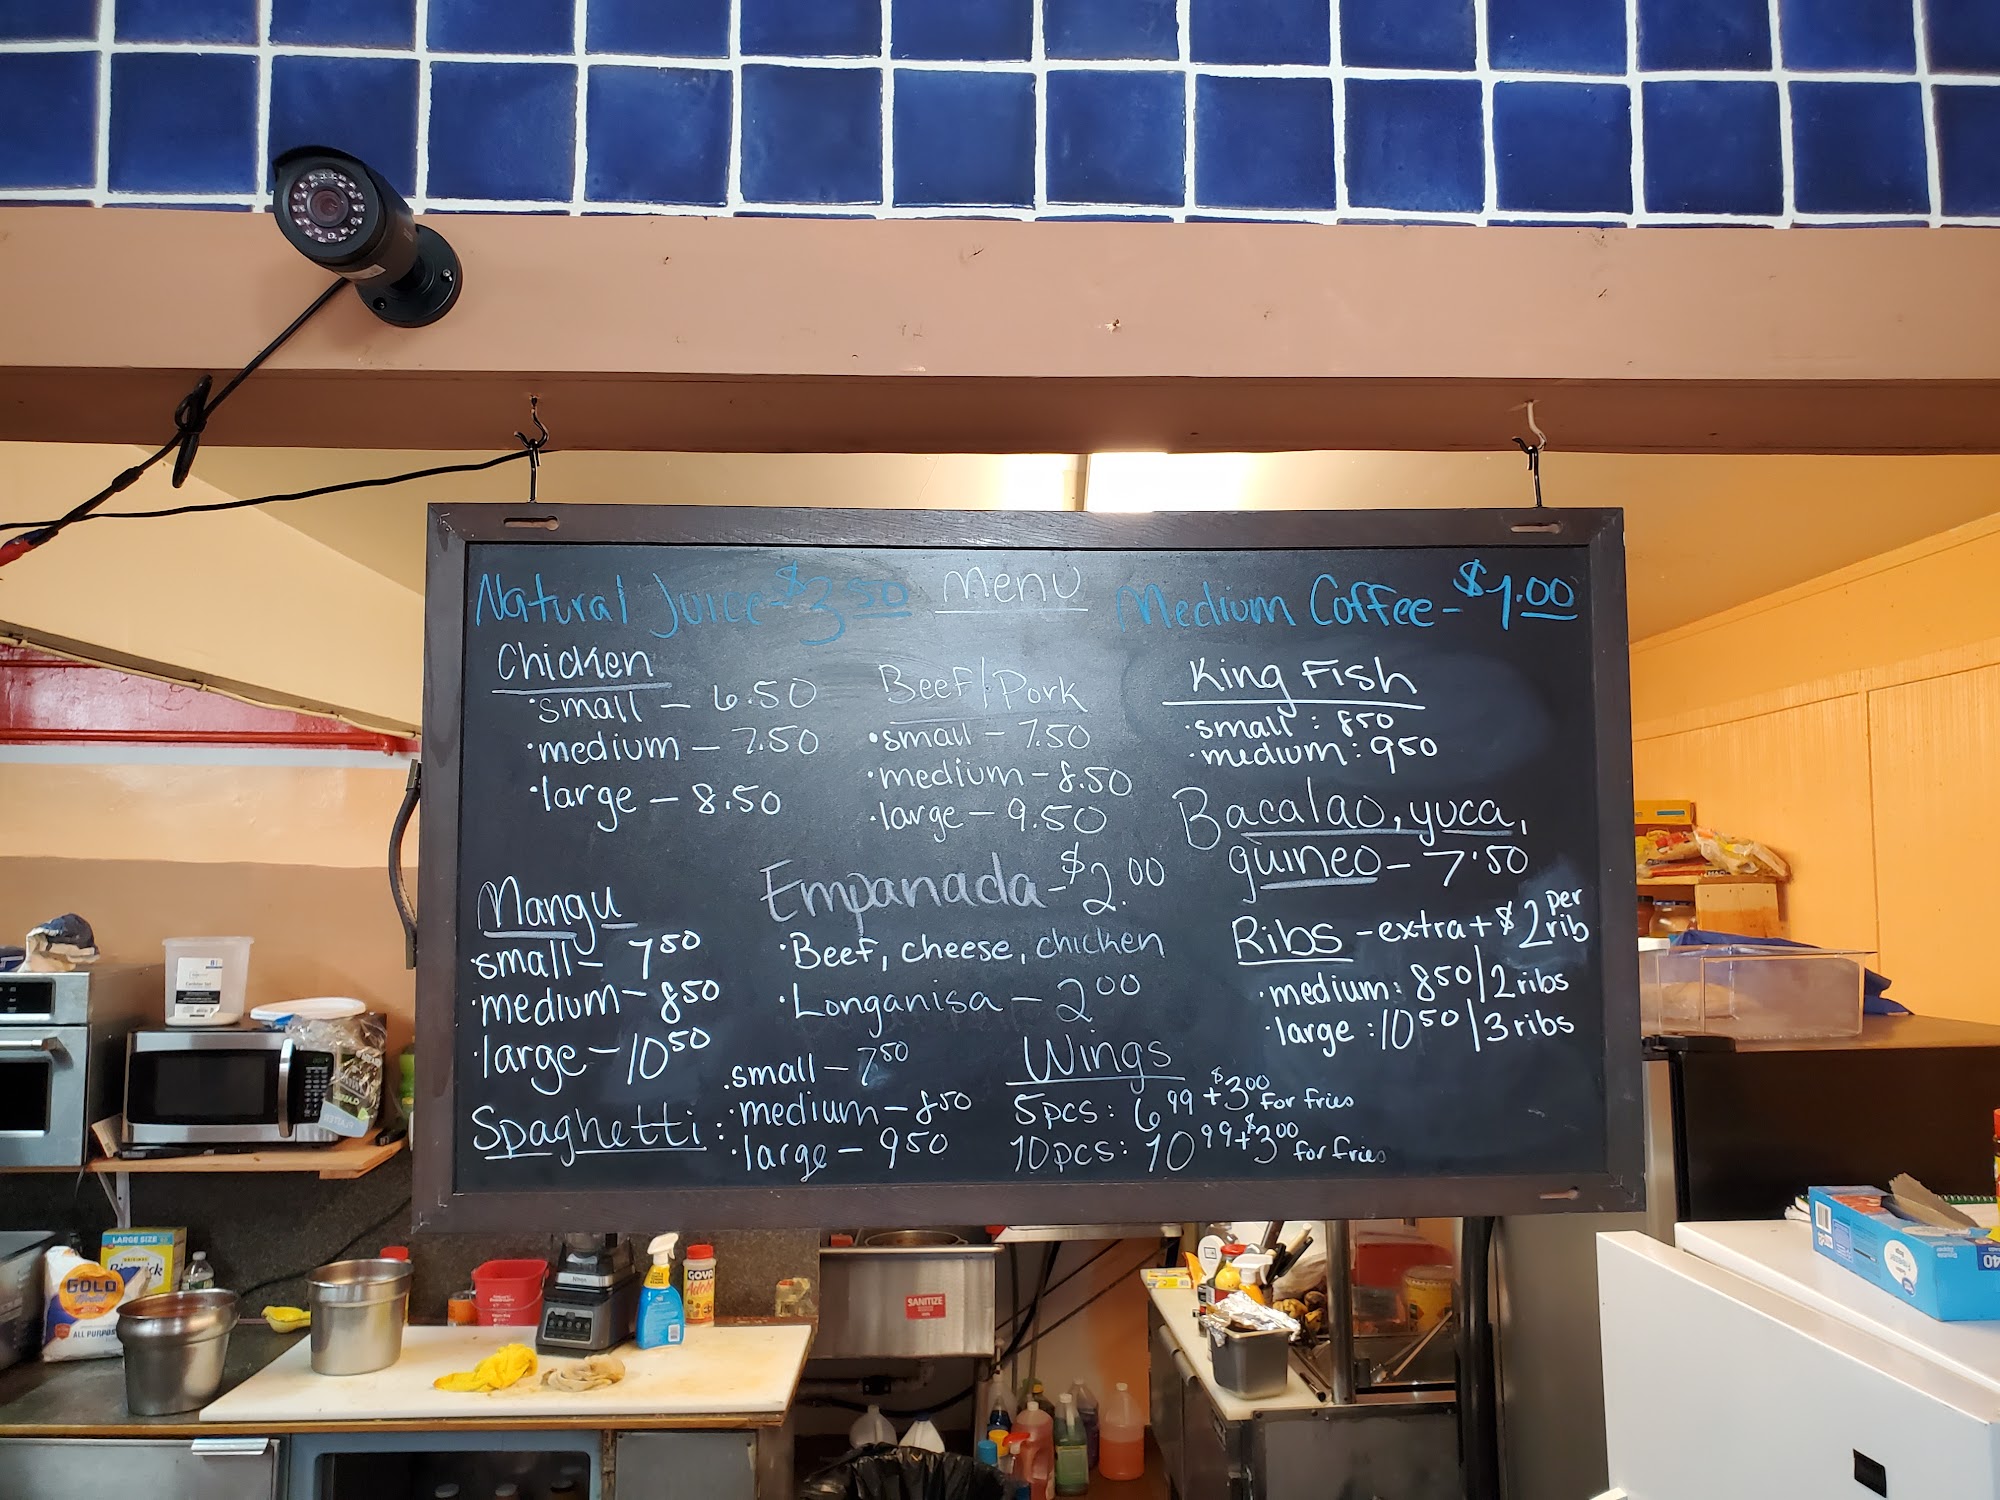 Natural Juice - $3.50
Menu
Medium Coffee - $1.00
Chicken
·small — 6.50
·medium — 7.50
·large — 8.50
Beef/Pork
·small — 7.50
·medium - 8.50
·large — 9.50
King Fish
·small : 850
·medium : 950
Bacalao, yuca,
guineo - 7.50
Mangu
·small - 7 50
·medium - 850
·large - 10 50
Empanada - $2.00
·Beef, cheese, chicken
·Longanisa — 2 00
Ribs - extra + $2 per rib
·medium: 8 50 / 2 ribs
·large : 10 50 / 3 ribs
Spaghetti:
·small — 7 50
·medium - 850
·large — 950
Wings
5pcs: 6 99 + $3 00 for fries
10pcs: 10 99 + $3 00 for fries
LARGE SIZE
GOLD
ALL PURPOSE
GOYA
Adobo
SANITIZE